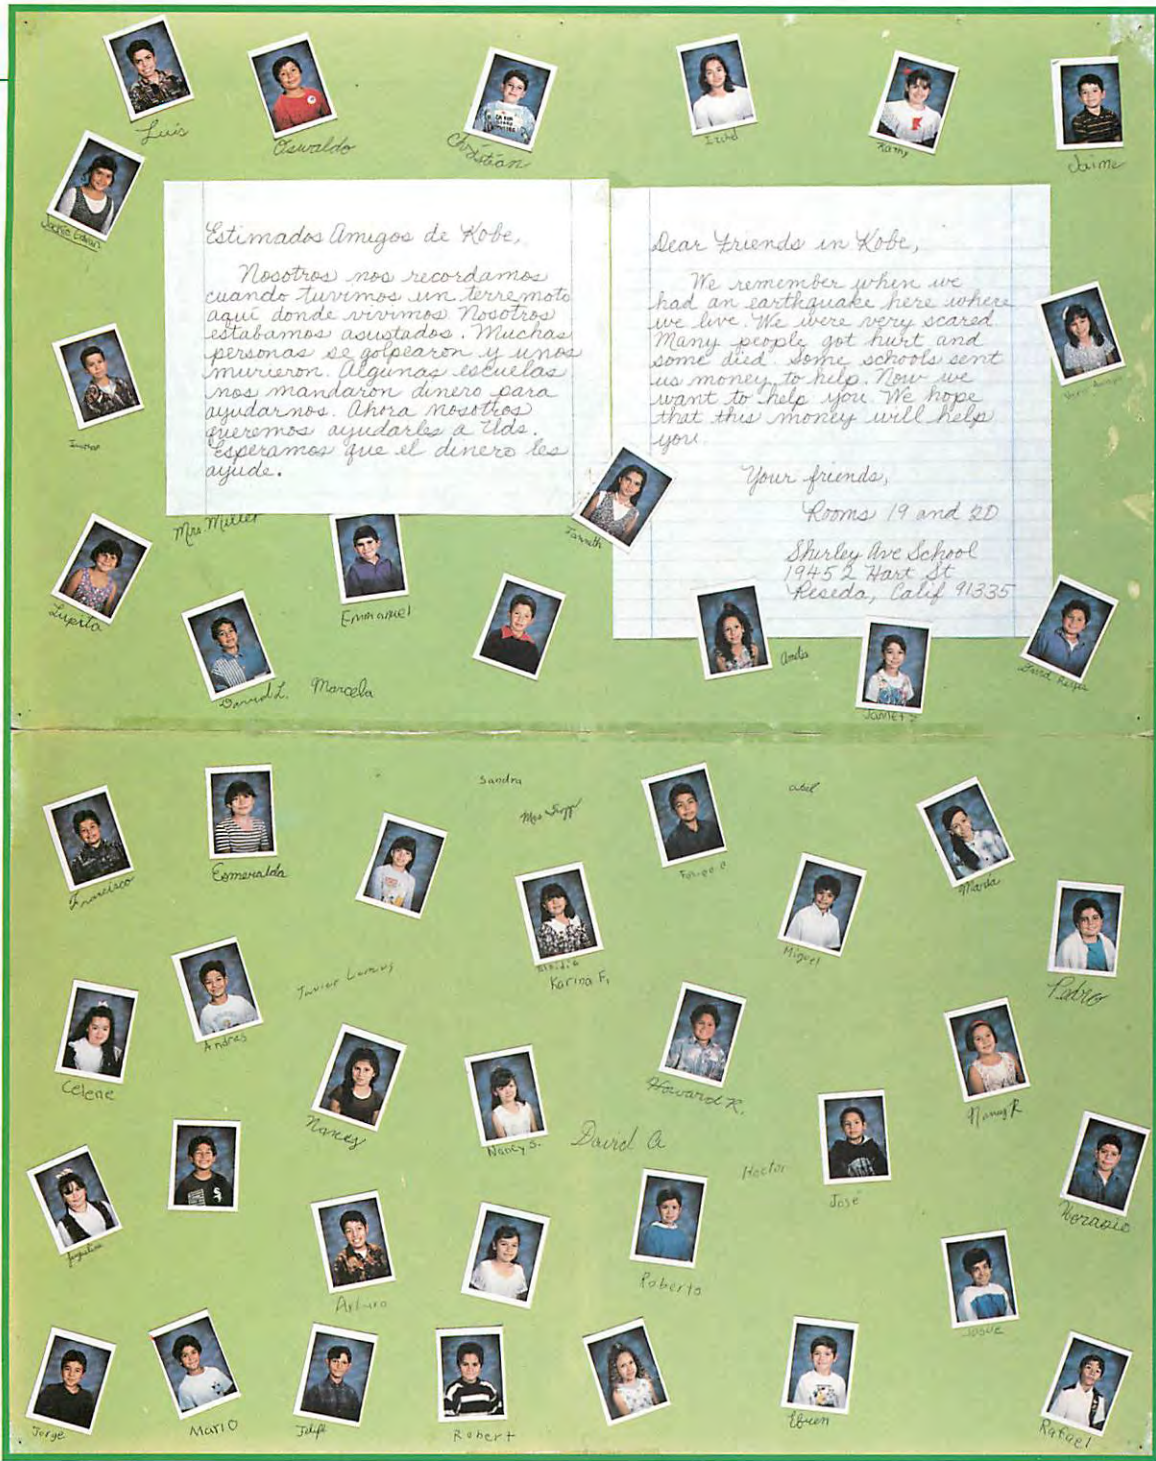 Luis
Oswaldo
Christian
Kathy
Jaime
Estimados Amigos de Kobe,
Nosotros nos recordamos
cuando tuvimos un terremoto
aquí donde vivimos. Nosotros
estabamos asustados. Muchas
personas se golpearon y unos
murieron. Algunas escuelas
nos mandaron dinero para
ayudarnos. Ahora nosotros
queremos ayudarles a Uds.
Esperamos que el dinero les
ayude.
Dear Friends in Kobe,
We remember when we
had an earthquake here where
we live. We were very scared.
Many people got hurt and
some died. Some schools sent
us money to help. Now we
want to help you. We hope
that this money will help
you.
Your friends,
Rooms 19 and 20
Shirley Ave School
19452 Hart St
Reseda, Calif 91335
Mrs. Miller
Janneth
Lupita
Emmanuel
David L.
Marcela
Anita
Janet
David Reyes
Sandra
Mrs
Abel
Francisco
Esmeralda
Felipe
María
Karina F.
Miguel
Pedro
Andres
Celene
Howard R.
Nancy R
Nancy
Nancy S.
David A
Hector
José
Horacio
Arturo
Roberto
Josue
Jorge
Mario
Felipe
Robert
Efren
Rafael